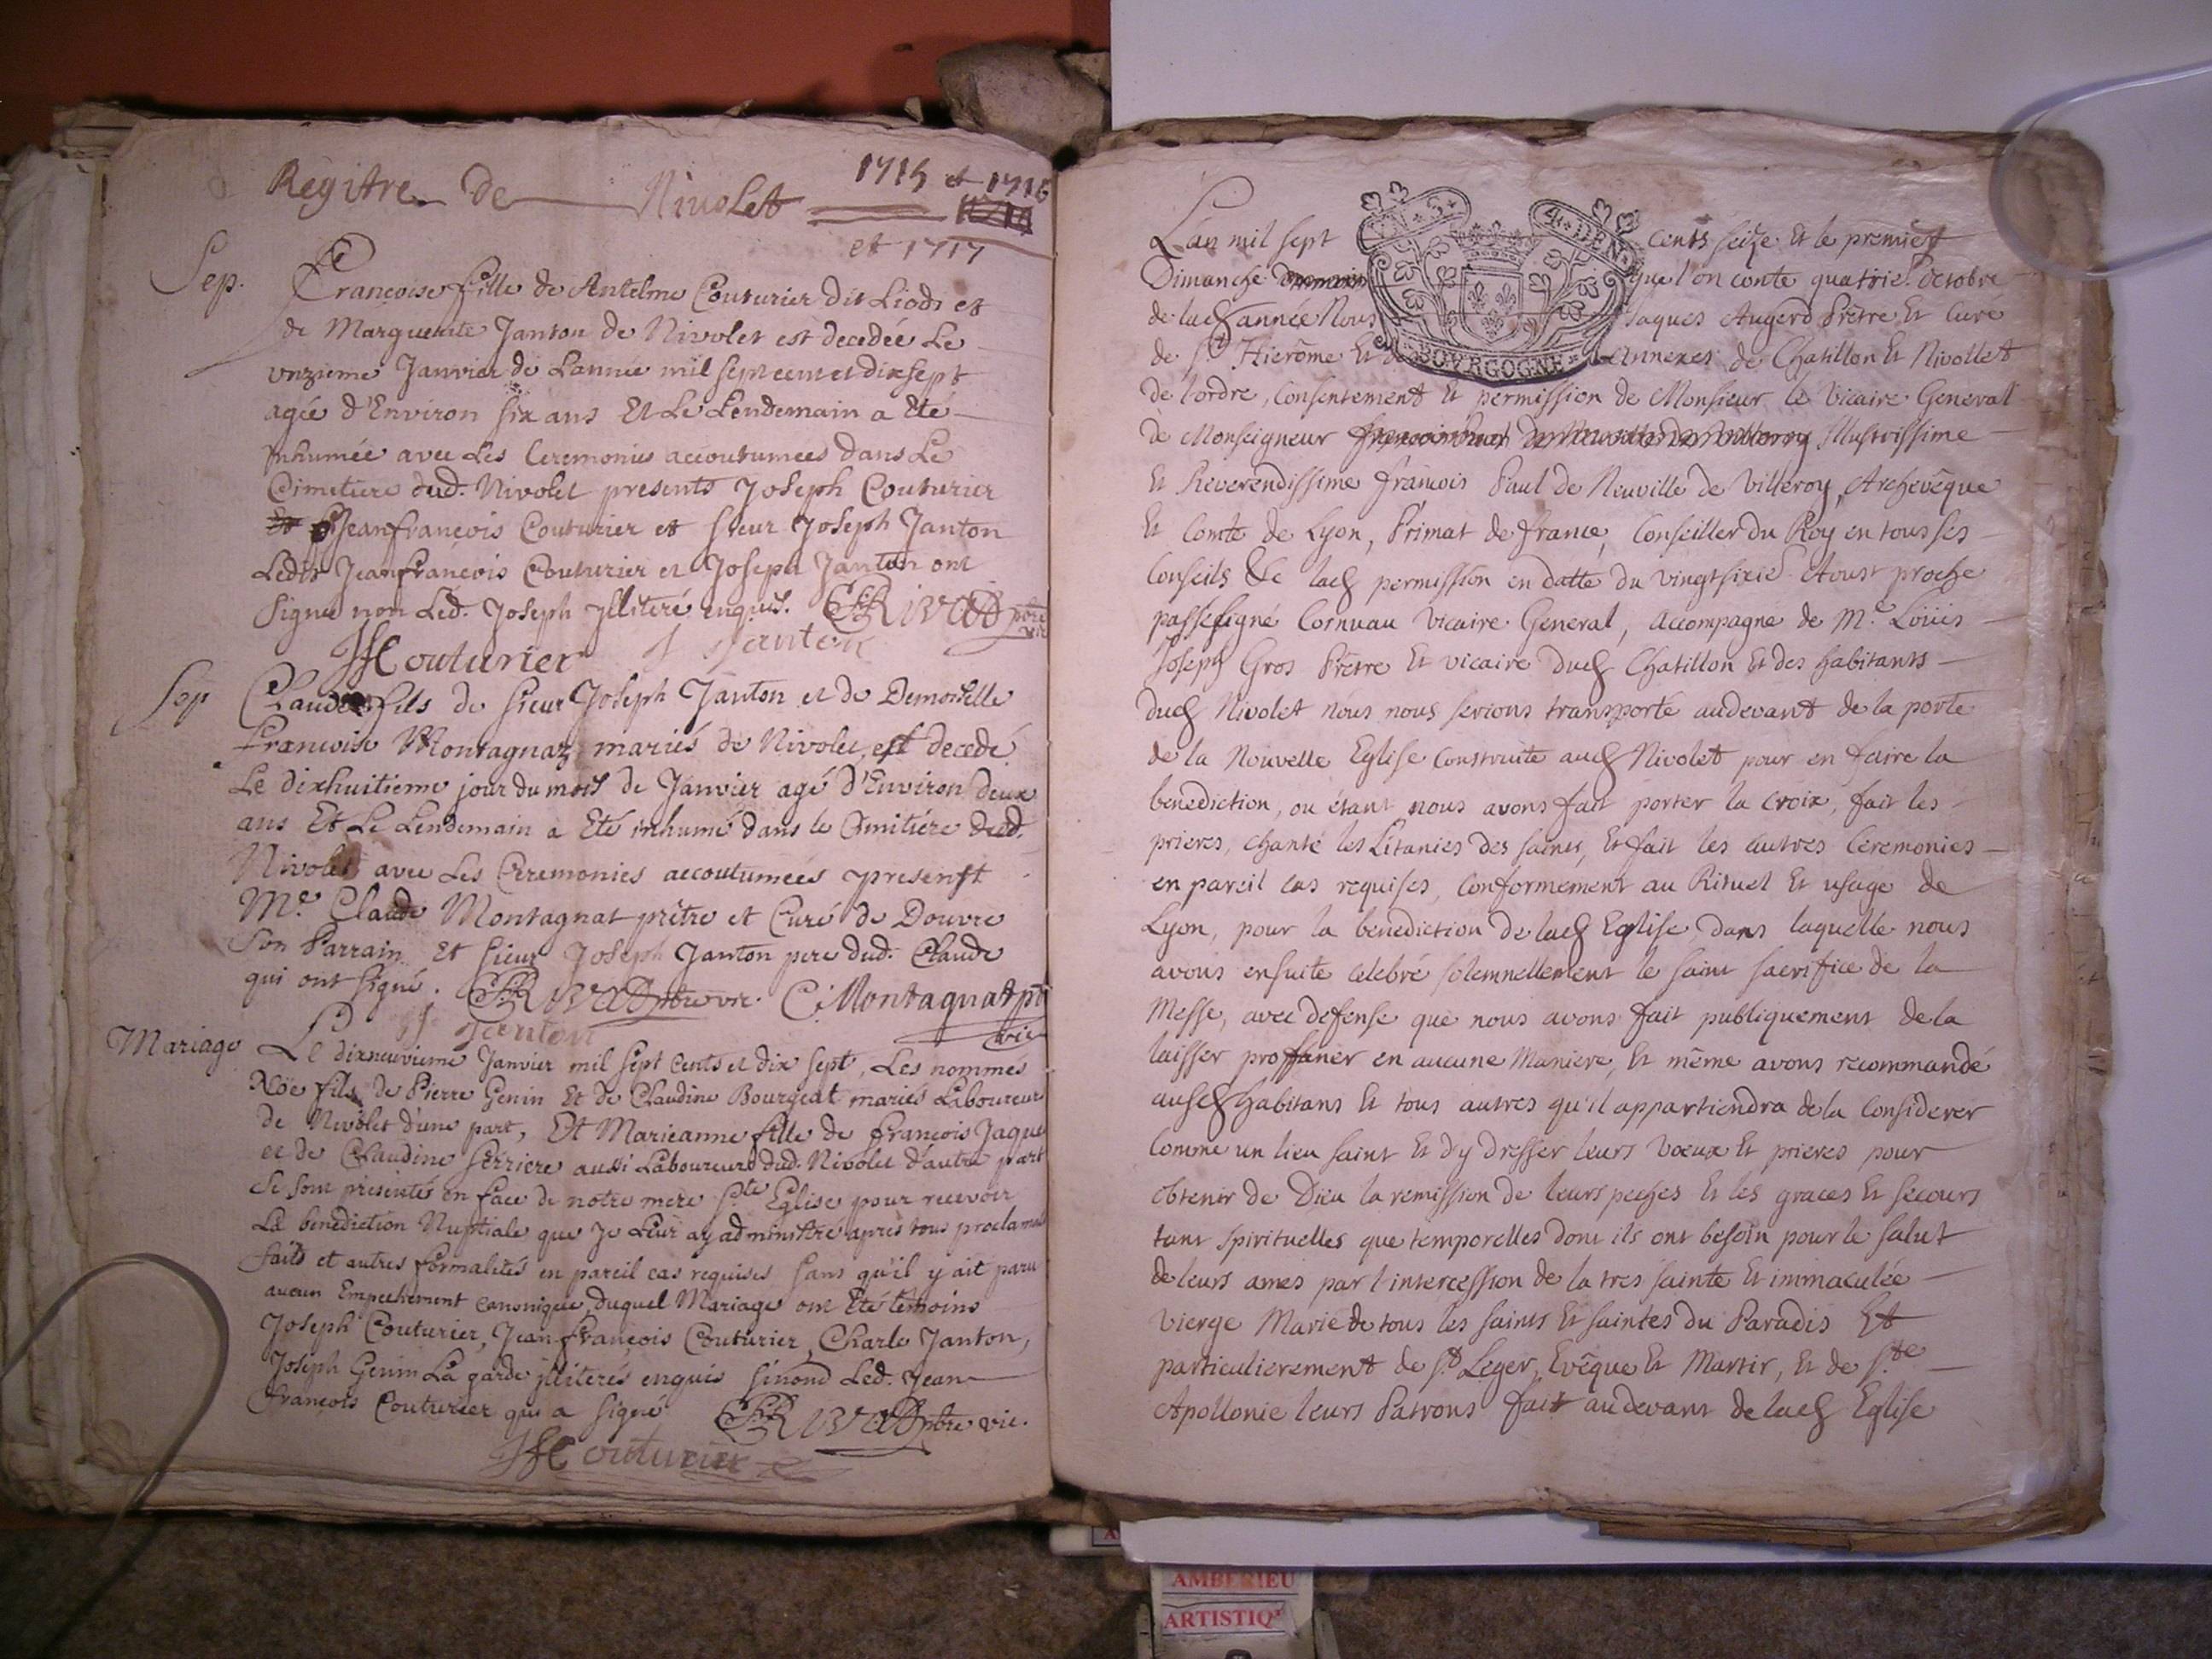 Regitre de Nivolet 1715 et 1716
et 1717
Sep.
Francoise fille de Antelme Couturier dit Liodi et
de Marguerite Janton de Nivolet est decedée Le
unzieme Janvier de Lannée mil sept cent et dix sept
agée d'Environ six ans Et Le Lendemain a Eté
inhumée avec Les Ceremonies accoutumees dans Le
Cimetiere dud. Nivolet presents Joseph Couturier
Jeanfrançois Couturier et sieur Joseph Janton
Ledit Jeanfrancois Couturier et Joseph Janton ont
signé non Led. Joseph jlliteré enquis. Rivat ptre vic
JfCouturier J Janton
Sep
Claude fils de sieur Joseph Janton et de Demoiselle
Francoise Montagnaz mariés de Nivolet, est decedé
Le dixhuitieme jour du mois de Janvier agé d'Environ deux
ans Et Le Lendemain a Eté inhumé dans le Cimitiére dud.
Nivolet avec Les Ceremonies accoutumées present
Me. Claude Montagnat prêtre et Curé de Douvre
son Parrain Et sieur Joseph Janton pere dud. Claude
qui ont signé. Rivat ptre vic. C. Montagnat pt
J Janton vic
Mariage
Le dixneuvieme Janvier mil sept cents et dix sept, Les nommés
Noë fils de Pierre Genin Et de Claudine Bourgeat mariés Laboureur
de Nivolet d'une part, Et Marieanne fille de françois Jaque
et de Claudine ferriere aussi Laboureurs dud. Nivolet d'autre part
se sont presentés en face de notre mere Ste Eglise pour recevoir
La benediction Nuptiale que Je Leur ay administré apres tous proclamas
faits et autres formalités en pareil cas requises sans qu'il y ait paru
aucun Empechement canonique, duquel Mariage ont Eté témoins
Joseph Couturier, Jean françois Couturier, Charle Janton,
Joseph Genin La garde jlliterés enquis sinond Led. Jean
françois Couturier qui a signé Rivat ptre vic.
JfCouturier
Lan mil sept cents seize Et le premier
S. 4. DEN.
BOVRGOGNE
Dimanche que l'on conte quatrie. octobre
de lad année Nous Jaques Augerd Prêtre Et Curé
de St Hierôme Et de annexes de Chatillon Et Nivollet
de l'ordre, Consentement Et permission de Monsieur le Vicaire General
de Monseigneur Illustrissime
Et Reverendissime francois Paul de Neuville de Villeroy, Archevêque
Et Comte de Lyon, Primat de france, Conseiller du Roy en tous ses
Conseils &c lad permission en datte du vingtsixie. Aoust proche
passé signé Cornuau Vicaire General, accompagné de Me. Loüis
Joseph Gros Prêtre Et vicaire dud Chatillon Et des habitants
dud Nivolet nous nous serions transporté audevant de la porte
de la Nouvelle Eglise construite aud Nivolet pour en faire la
benediction, ou étant nous avons fait porter la Croix, fait les
prieres, chanté les Litanies des saints, Et fait les autres Ceremonies
en pareil cas requises, conformement au Rituel Et usage de
Lyon, pour la benediction de lad Eglise, dans laquelle nous
avons ensuite celebré solemnellement le saint sacrifice de la
Messe, avec defense que nous avons fait publiquement de la
laisser proffaner en aucune Maniere, Et même avons recommandé
ausd habitans Et tous autres qu'il appartiendra de la Considerer
Comme un lieu saint Et d'y dresser leurs voeux Et prieres pour
obtenir de Dieu la remission de leurs peches Et les graces Et secours
tant spirituelles que temporelles dont ils ont besoin pour le salut
de leurs ames par l'intercession de la tres sainte Et immaculée
Vierge Marie de tous les saints Et saintes du Paradis Et
particulierement de St. Leger, Evêque Et Martir, Et de Ste.
Apollonie leurs Patrons fait audevant de lad Eglise
AMBERIEU
ARTISTIQ